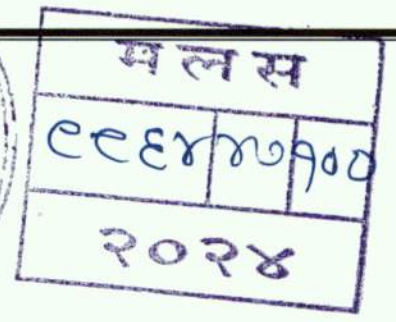 मलस
९९६४ ४७ १००
२०२४